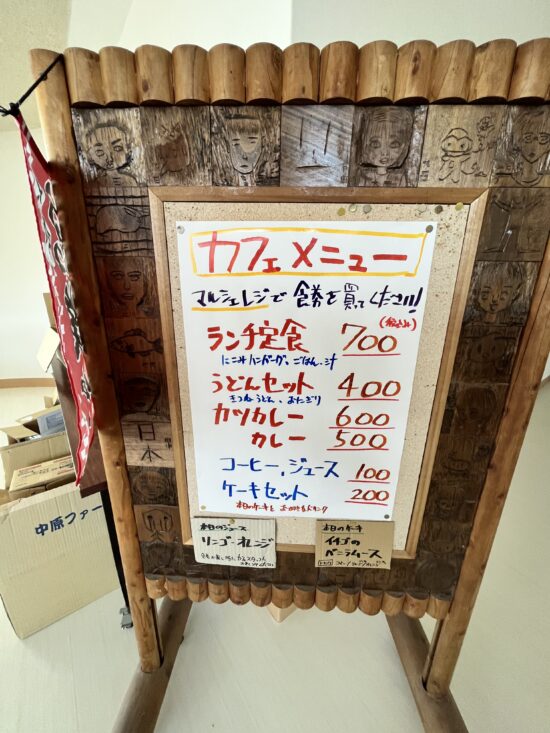 カフェ メニュー
マルシェレジで 食券を買ってください!
(税込み)
ランチ定食 700
にこみハンバーグ、ごはん、汁
うどんセット 400
きつねうどん、おにぎり
カツカレー 600
カレー 500
コーヒー、ジュース 100
ケーキセット 200
本日のケーキと
本日のジュース
リンゴ・オレンジ
本日のケーキ
イチゴの
ババロアムース
日
本
中原ファー